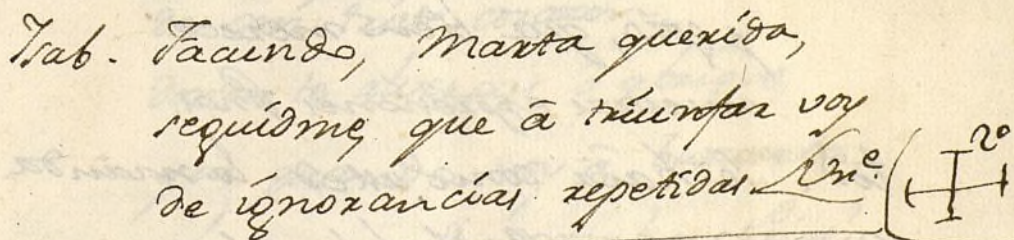 Isab. Facundo, Marta querida,
seguidme, que â triunfar voy
de ignorancias repetidas. 2º